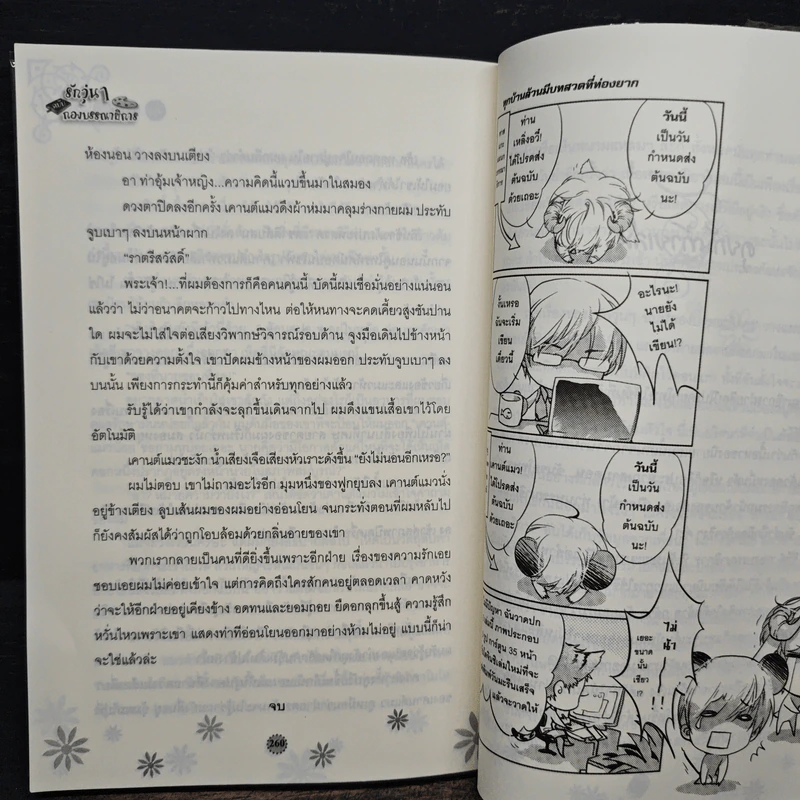 รักวุ่นๆ
กองบรรณาธิการ
ห้องนอน วางลงบนเตียง
อา ท่าอุ้มเจ้าหญิง...ความคิดนี้แวบขึ้นมาในสมอง
ดวงตาปิดลงอีกครั้ง เคานต์แมวดึงผ้าห่มมาคลุมร่างกายผม ประทับ
จูบเบาๆ ลงบนหน้าผาก
“ราตรีสวัสดิ์”
พระเจ้า!...ที่ผมต้องการก็คือคนคนนี้ บัดนี้ผมเชื่อมั่นอย่างแน่นอน
แล้วว่า ไม่ว่าอนาคตจะก้าวไปทางไหน ต่อให้หนทางจะคดเคี้ยวสูงชันปาน
ใด ผมจะไม่ใส่ใจต่อเสียงวิพากษ์วิจารณ์รอบด้าน จูงมือเดินไปข้างหน้า
กับเขาด้วยความตั้งใจ เขาปัดผมข้างหน้าของผมออก ประทับจูบเบาๆ ลง
บนนั้น เพียงการกระทำนี้ก็คุ้มค่าสำหรับทุกอย่างแล้ว
รับรู้ได้ว่าเขากำลังจะลุกขึ้นเดินจากไป ผมดึงแขนเสื้อเขาไว้โดย
อัตโนมัติ
เคานต์แมวชะงัก น้ำเสียงเจือเสียงหัวเราะดังขึ้น “ยังไม่นอนอีกเหรอ?”
ผมไม่ตอบ เขาไม่ถามอะไรอีก มุมหนึ่งของฟูกยุบลง เคานต์แมวนั่ง
อยู่ข้างเตียง ลูบเส้นผมของผมอย่างอ่อนโยน จนกระทั่งตอนที่ผมหลับไป
ก็ยังคงสัมผัสได้ว่าถูกโอบล้อมด้วยกลิ่นอายของเขา
พวกเรากลายเป็นคนที่ดียิ่งขึ้นเพราะอีกฝ่าย เรื่องของความรักเอย
ชอบเอยผมไม่ค่อยเข้าใจ แต่การคิดถึงใครสักคนอยู่ตลอดเวลา คาดหวัง
ว่าจะให้อีกฝ่ายอยู่เคียงข้าง อดทนและยอมถอย ยืดอกลุกขึ้นสู้ ความรู้สึก
หวั่นไหวเพราะเขา แสดงท่าทีอ่อนโยนออกมาอย่างห้ามไม่อยู่ แบบนี้ก็น่า
จะใช่แล้วล่ะ
จบ
260
ทุกบ้านล้วนมีบทสวดที่ท่องยาก
วันนี้
เป็นวัน
กำหนดส่ง
ต้นฉบับ
นะ!
ท่าน
เหลิ่งอวี๋!
ได้โปรดส่ง
ต้นฉบับ
ด้วยเถอะ
อะไรนะ!
นายยัง
ไม่ได้
เขียน!?
งั้นเหรอ
ฉันจะเริ่ม
เขียน
เดี๋ยวนี้
วันนี้
เป็นวัน
กำหนดส่ง
ต้นฉบับ
นะ!
ท่าน
เคานต์แมว!
ได้โปรดส่ง
ต้นฉบับ
ด้วยเถอะ
ไม่
น้า
เยอะ
ขนาด
นั้น
เชียว
!?
ปัญหา ฉันวาดปก
ภาพประกอบ
การ์ตูน 35 หน้า
เล่มใหม่ที่จะ
เสร็จ
แล้วจะวาดให้